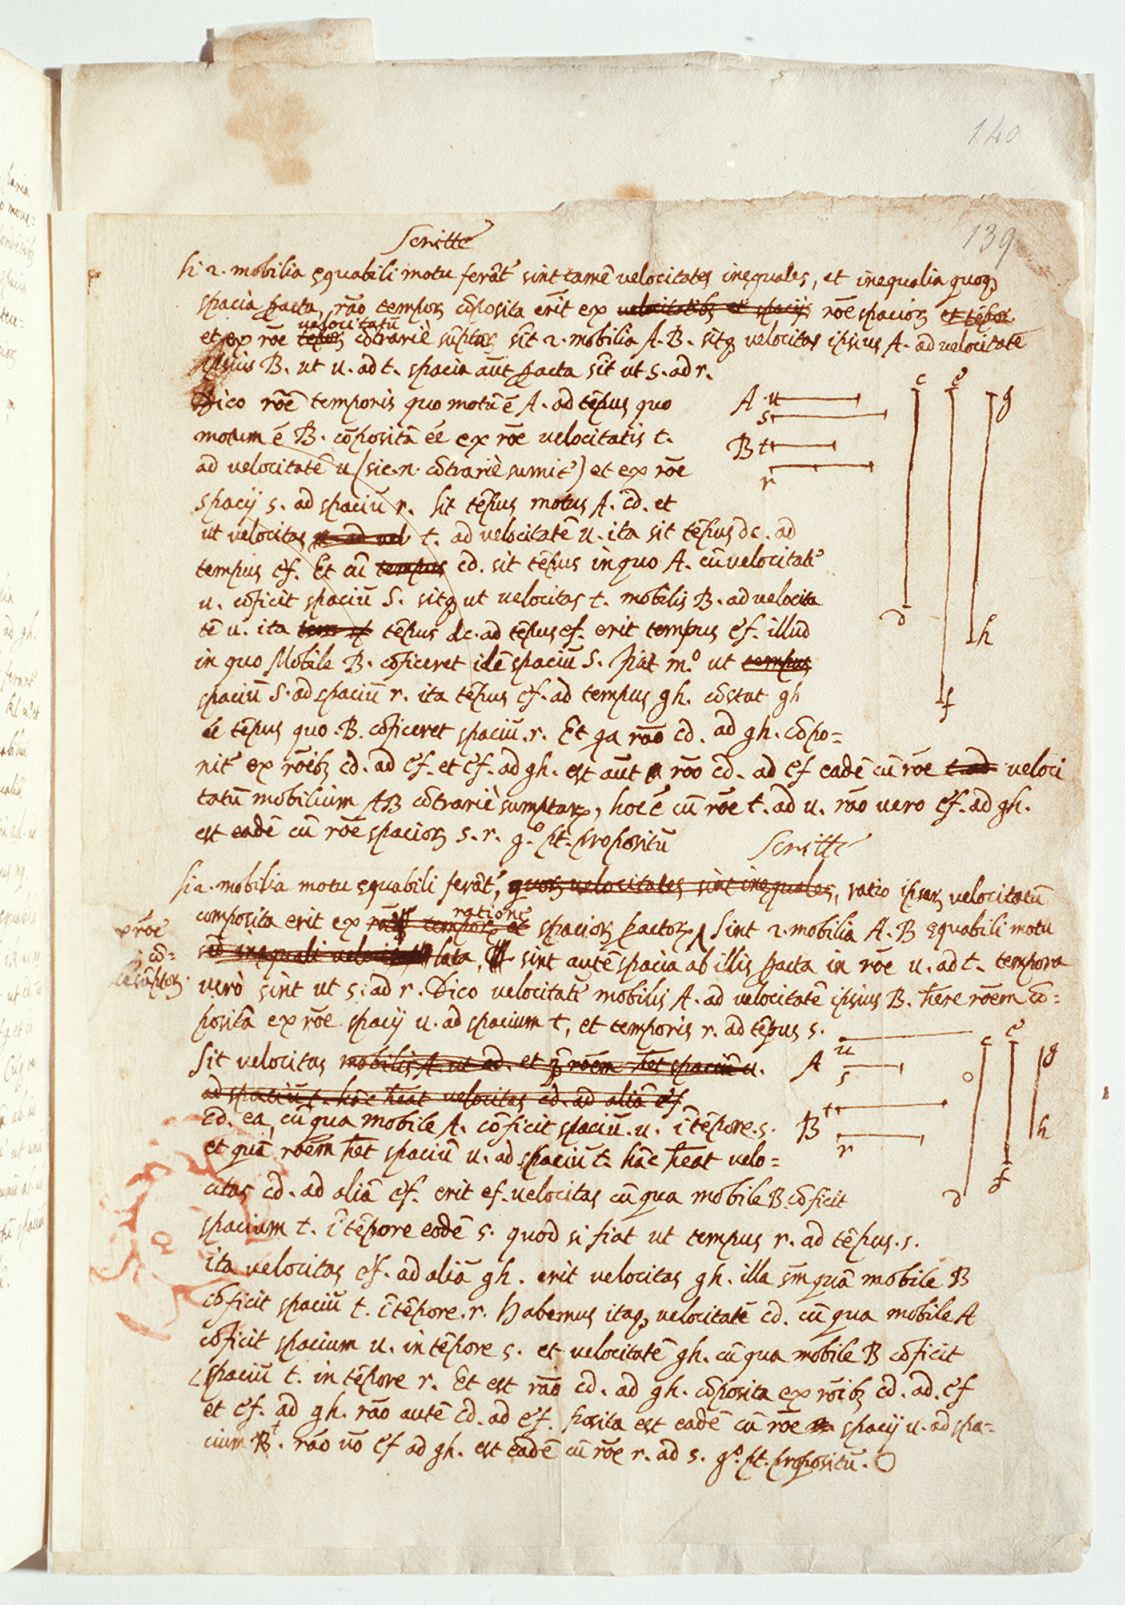 140
139
Scritte
Si 2. mobilia equabili motu ferãt̃ sint tamẽ velocitates inequales, et inequalia quoq̨
spacia pacta, rão temporꝝ cõposita erit ex velocitatibꝫ et spacijs rõe spaciorꝝ et tẽporꝝ
velocitatũ
et ex rõe tẽporꝝ cõtrariè sũptarꝝ sĩt 2. mobilia A. B. sitq̨ velocitas ipsius A. ad velocitatẽ
ipsius B. ut u. ad t. spacia aũt pacta sĩt ut s. ad r.
Dico rõẽ temporis quo motũ ẽ A. ad tẽpus quo
motum ẽ B. cõpositã ẽe ex rõe velocitatis t.
ad velocitatẽ u (sic .n. cõtrariè sumit̃) et ex rõe
spacij s. ad spaciũ r. Sit tẽpus motus A. cd. et
ut velocitas u. ad vel t. ad velocitatẽ u. ita sit tẽpus dc. ad
tempus ef. Et cũ tempus cd. sit tẽpus in quo A. cũ velocitate
u. cõficit spaciũ S. sitq̨ ut velocitas t. mobilis B. ad velocita
tẽ u. ita tẽpus dc. ad tẽpus ef. erit tempus ef. illud
in quo Mobile B. cõficeret idẽ spaciũ S. Fiat mº ut tempus
spaciũ S. ad spaciũ r. ita tẽpus ef. ad tempus gh. cõstat gh
ẽe tẽpus quo .B. cõficeret spaciũ .r. Et qa rão cd. ad gh. cõpo=
nit̃ ex rõibꝫ cd. ad ef. et ef. ad gh. est aũt rão cd. ad ef eadẽ cũ rõe t. ad veloci
tatũ mobilium AB cõtrariè sumptarꝝ, hoc ẽ cũ rõe t. ad u. rão vero ef. ad gh.
est eadẽ cũ rõe spaciorꝝ s. r. gº pt. propositũ
A u
s
B t
r
c e g
d h
f
Scritte
Si 2. mobilia motu equabili ferãt̃, quorꝝ velocitates sint inequales, ratio ipsarꝝ velocitatũ
ratione
composita erit ex temporꝝ et spaciorꝝ pactorꝝ Sint 2. mobilia A. B equabili motu
ex rõe
sed inequali lata, sint autẽ spacia ab illis pacta in rõe u. ad t. tempora
verò sint ut s. ad r. Dico velocitatẽ mobilis A. ad velocitatẽ ipsius B. h̃ere rõem cõ=
positã ex rõe spacij u. ad spacium t, et temporis r. ad tẽpus s.
Sit velocitas mobilis A. ut cd. et q̃ rõem h̃et spaciũ u.
ad spaciũ t. hãc h̃eat velocitas cd. ad aliã ef
cd. ea, cũ qua mobile A. cõficit spaciũ .u. ĩ tẽpore .s.
et quã rõem h̃et spaciũ u. ad spaciũ t. hãc h̃eat velo=
citas cd. ad aliã ef. erit ef. velocitas cũ qua mobile B. cõficit
spacium t. ĩ tẽpore eodẽ s. quod si fiat ut tempus r. ad tẽpus .s.
ita velocitas ef. ad aliã gh. erit velocitas gh. illa sm̃ quã mobile B
cõficit spaciũ t. ĩ tẽpore .r. Habemus itaq̨ velocitatẽ cd. cũ qua mobile A
cõficit spacium u. in tẽpore s. et velocitatẽ gh. cũ qua mobile B cõficit
spaciũ t. in tẽpore r. Et est rão cd. ad gh. cõposita ex rõibꝫ cd. ad. ef
et ef. ad gh. rão autẽ cd. ad ef. posita est eadẽ cũ rõe spacij u. ad spa=
cium t. rão ṽo ef ad gh. est eadẽ cũ rõe r. ad s. gº. pt. propositũ.
A u
s
B t
r
c e g
d f h